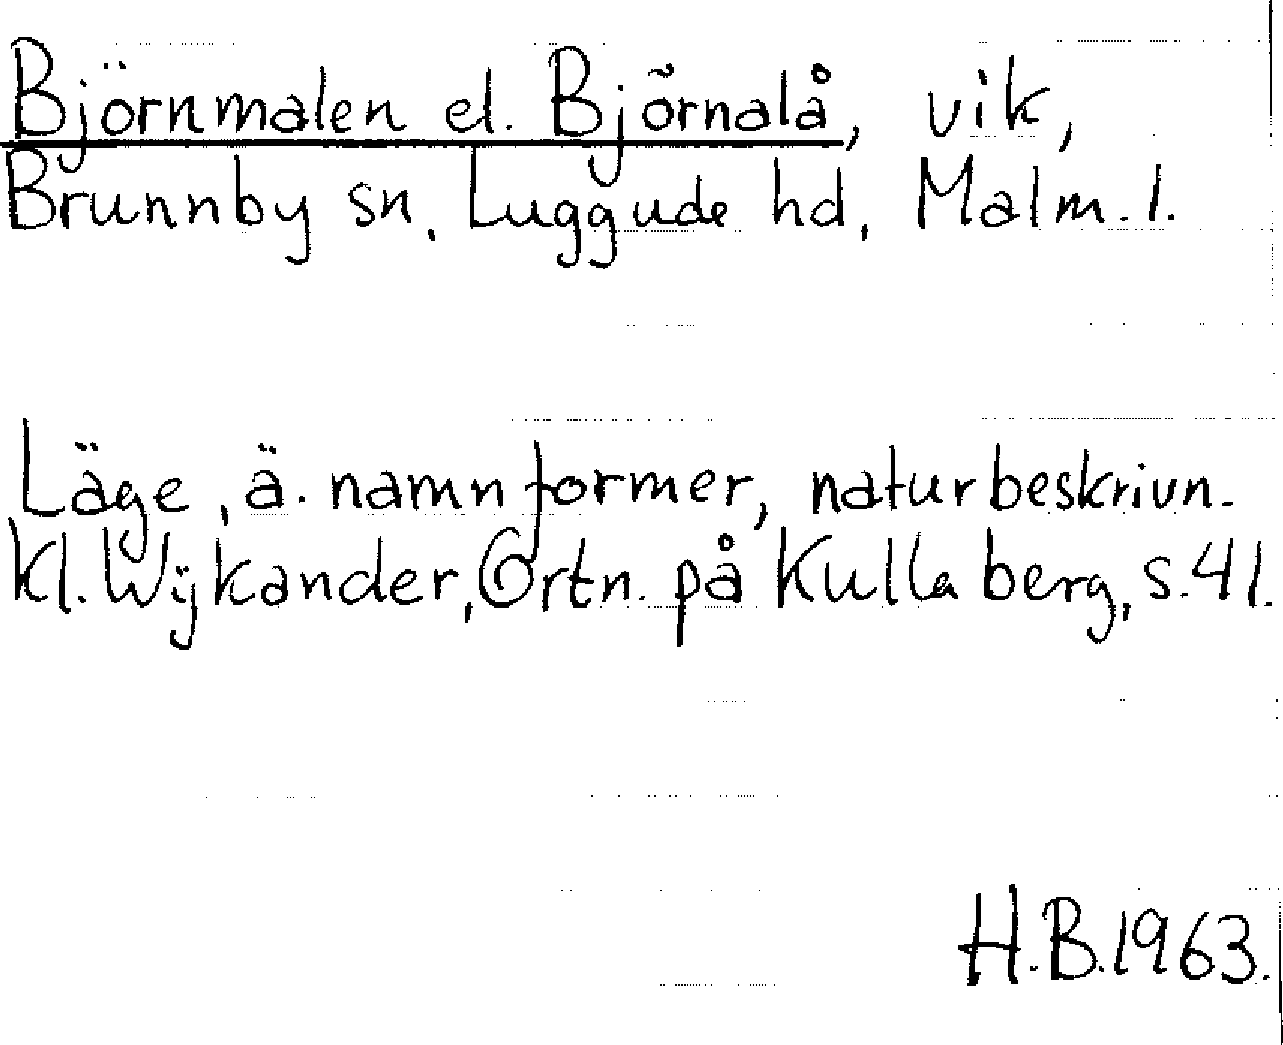 Björnmalen el. Björnalå, vik,
Brunnby sn, Luggude hd, Malm. l.
Läge, ä. namnformer, naturbeskrivn.
Kl. Wijkander, Ortn. på Kullaberg, s. 41.
H.B. 1963.